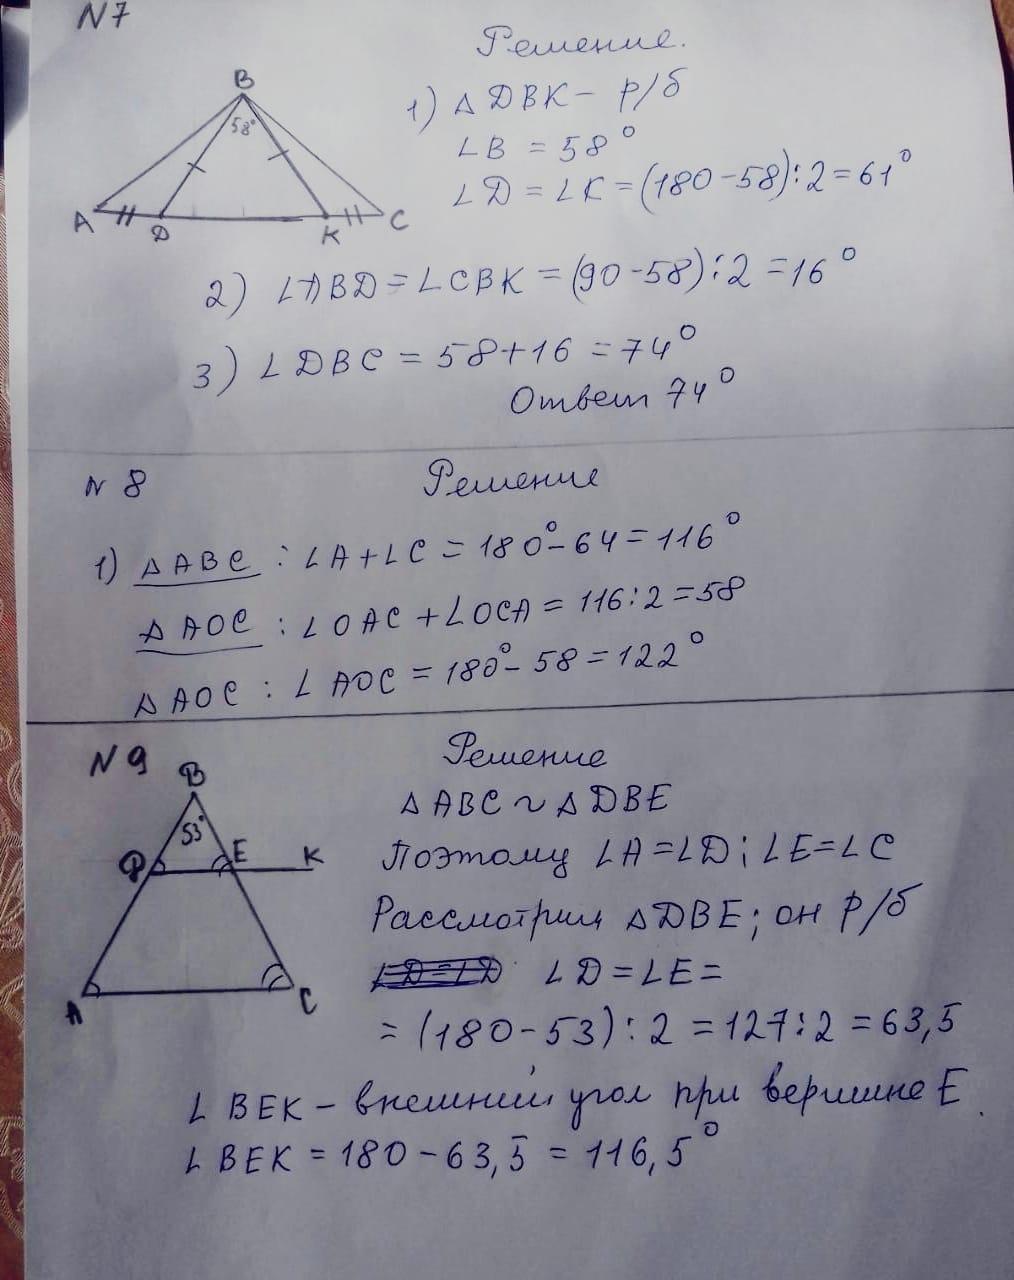 N7
Решение.
B
58°
A
D
K
C
1) Δ DBK – р/б
∠B = 58°
∠D = ∠K = (180-58):2=61°
2) ∠ABD=∠CBK=(90-58):2=16°
3) ∠DBC = 58+16 = 74°
Ответ 74°
N 8
Решение
1) ΔABC : ∠A+∠C = 180°-64=116°
ΔAOC : ∠OAC+∠OCA=116:2=58
ΔAOC : ∠AOC = 180°-58=122°
N 9
Решение
B
53°
E
K
A
C
ΔABC ~ ΔDBE
Поэтому ∠A=∠D; ∠E=∠C
Рассмотрим ΔDBE; он р/б
∠D=∠E=
= (180-53):2 =127:2 = 63,5
∠BEK – внешний угол при вершине E.
∠BEK = 180-63,5 = 116,5°